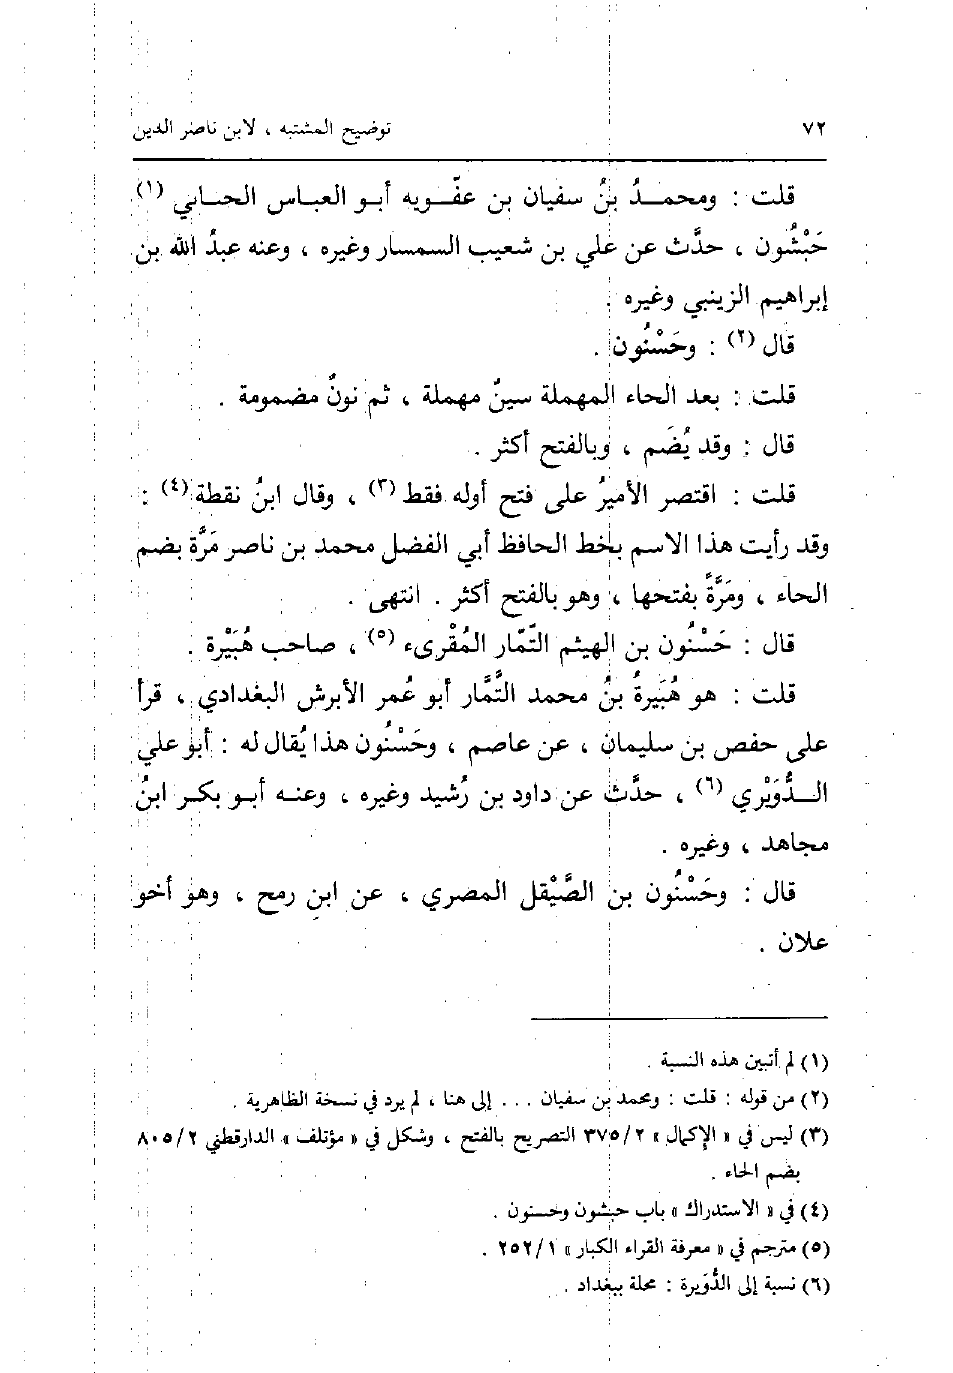 ٧٢ توضيح المشتبه ، لابن ناصر الدين
قلت : ومحمــدُ بنُ سفيان بن عفّــويه أبــو العبــاس الحبــابي (١)
حَبْشُون ، حدَّث عن علي بن شعيب السمسار وغيره ، وعنه عبدُ الله بن
إبراهيم الزينبي وغيره .
قال (٢) : وحَسْنُون .
قلت : بعد الحاء المهملة سينٌ مهملة ، ثم نونٌ مضمومة .
قال : وقد يُضَم ، وبالفتح أكثر .
قلت : اقتصر الأميرُ على فتح أوله فقط (٣) ، وقال ابنُ نقطة (٤) :
وقد رأيت هذا الاسم بخط الحافظ أبي الفضل محمد بن ناصر مَرَّة بضم
الحاء ، ومَرَّةً بفتحها ، وهو بالفتح أكثر . انتهى .
قال : حَسْنُون بن الهيثم التَّمَّار المُقْرىء (٥) ، صاحب هُبَيْرة .
قلت : هو هُبَيرةُ بنُ محمد التَّمَّار أبو عُمر الأبرش البغدادي ، قرأ
على حفص بن سليمان ، عن عاصم ، وحَسْنُون هذا يُقال له : أبو علي
الــدُّوَيْري (٦) ، حدَّث عن داود بن رُشيد وغيره ، وعنــه أبــو بكــر ابنُ
مجاهد ، وغيره .
قال : وحَسْنُون بن الصَّيْقل المصري ، عن ابن رمح ، وهو أخو
علان .
(١) لم أتبين هذه النسبة .
(٢) من قوله : قلت : ومحمد بن سفيان . . . إلى هنا ، لم يرد في نسخة الظاهرية .
(٣) ليس في « الإكمال » ٣٧٥/٢ التصريح بالفتح ، وشكل في « مؤتلف » الدارقطني ٨٠٥/٢
بضم الحاء .
(٤) في « الاستدراك » باب حبشون وحسنون .
(٥) مترجم في « معرفة القراء الكبار » ٢٥٢/١ .
(٦) نسبة إلى الدُّوَيرة : محلة ببغداد .